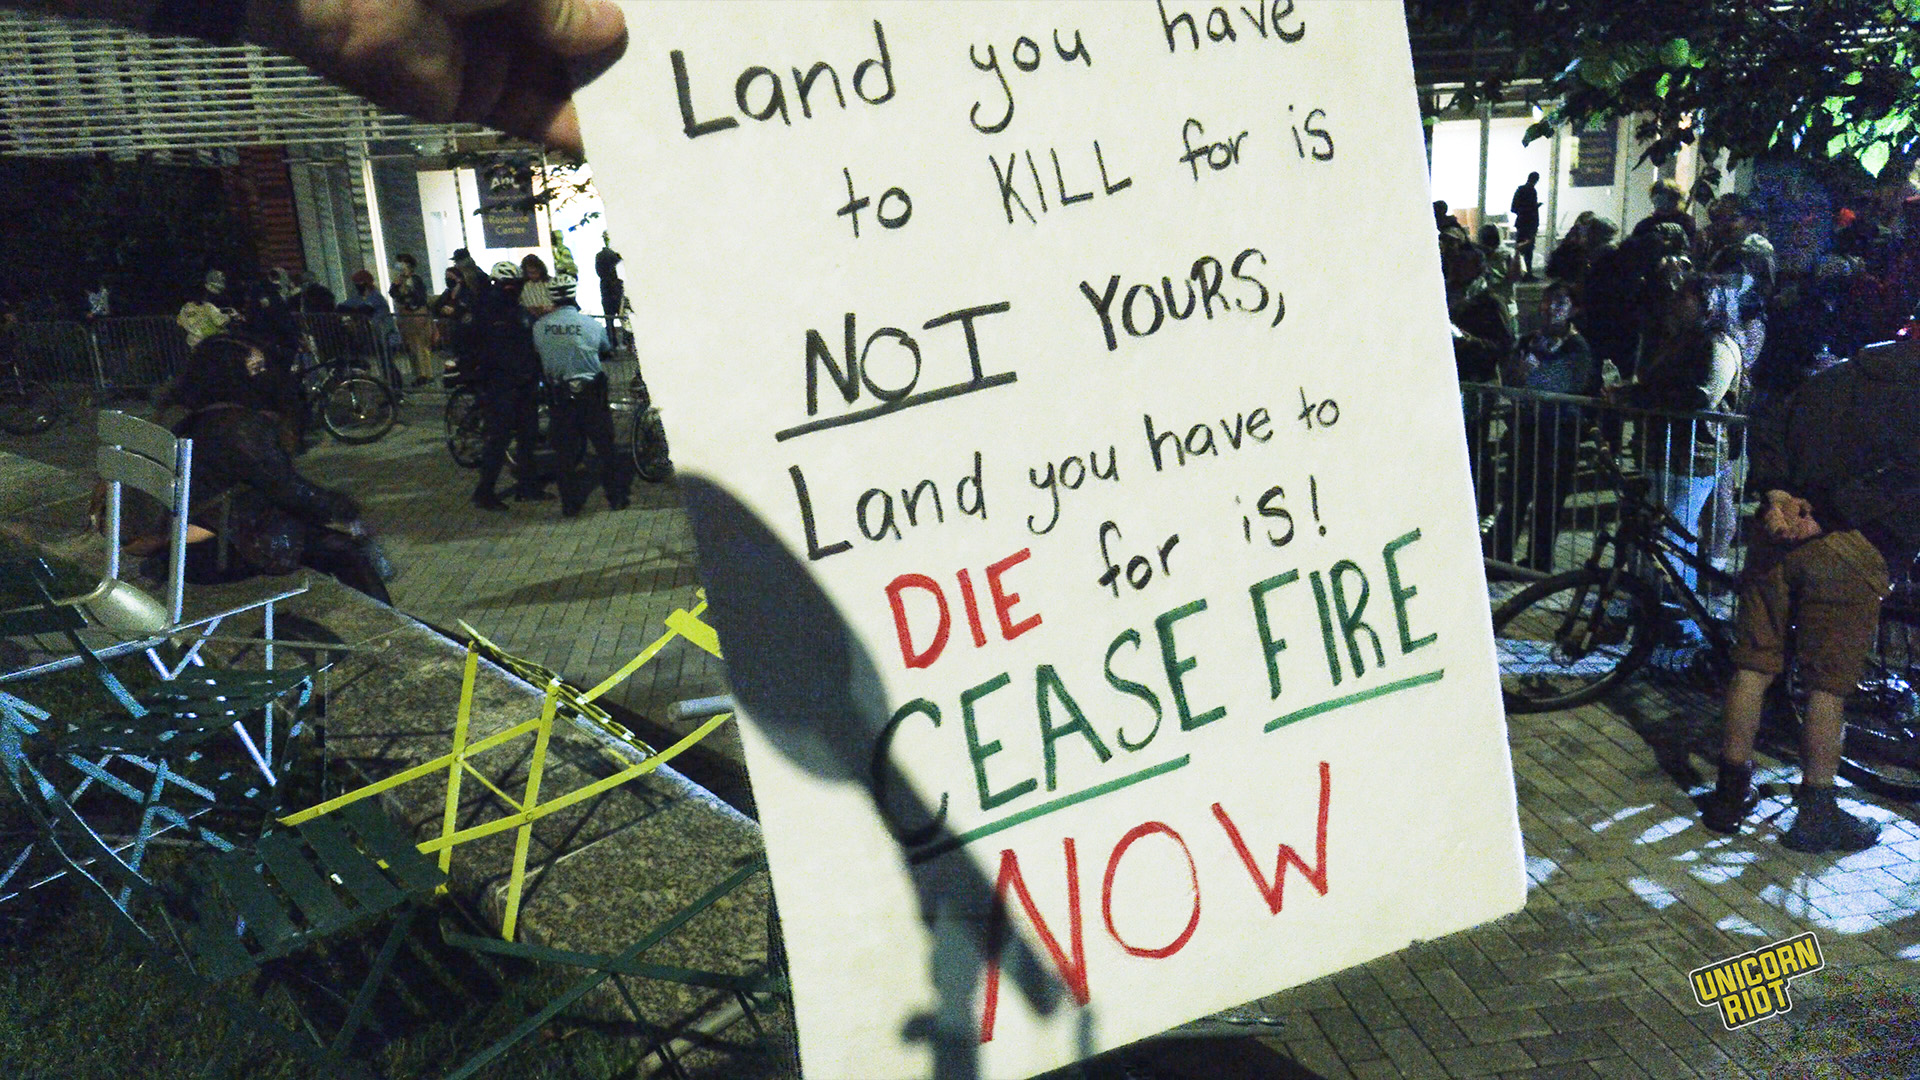 Land you have
to KILL for is
NOT YOURS,
Land you have to
DIE for is!
CEASE FIRE
NOW
POLICE
Resource
Center
UNICORN
RIOT